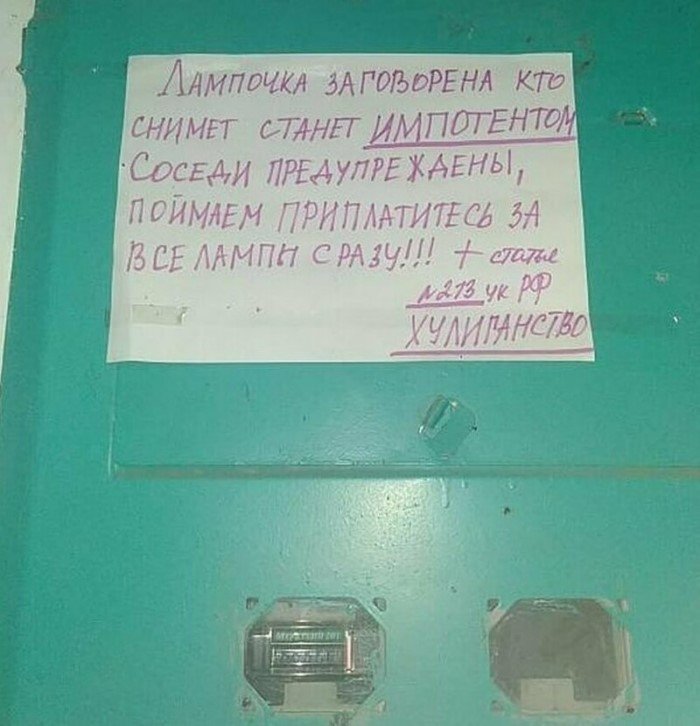 Лампочка заговорена кто
снимет станет импотентом
Соседи предупреждены,
поймаем приплатитесь за
все лампы сразу!!! + статье
№213 ук РФ
Хулиганство